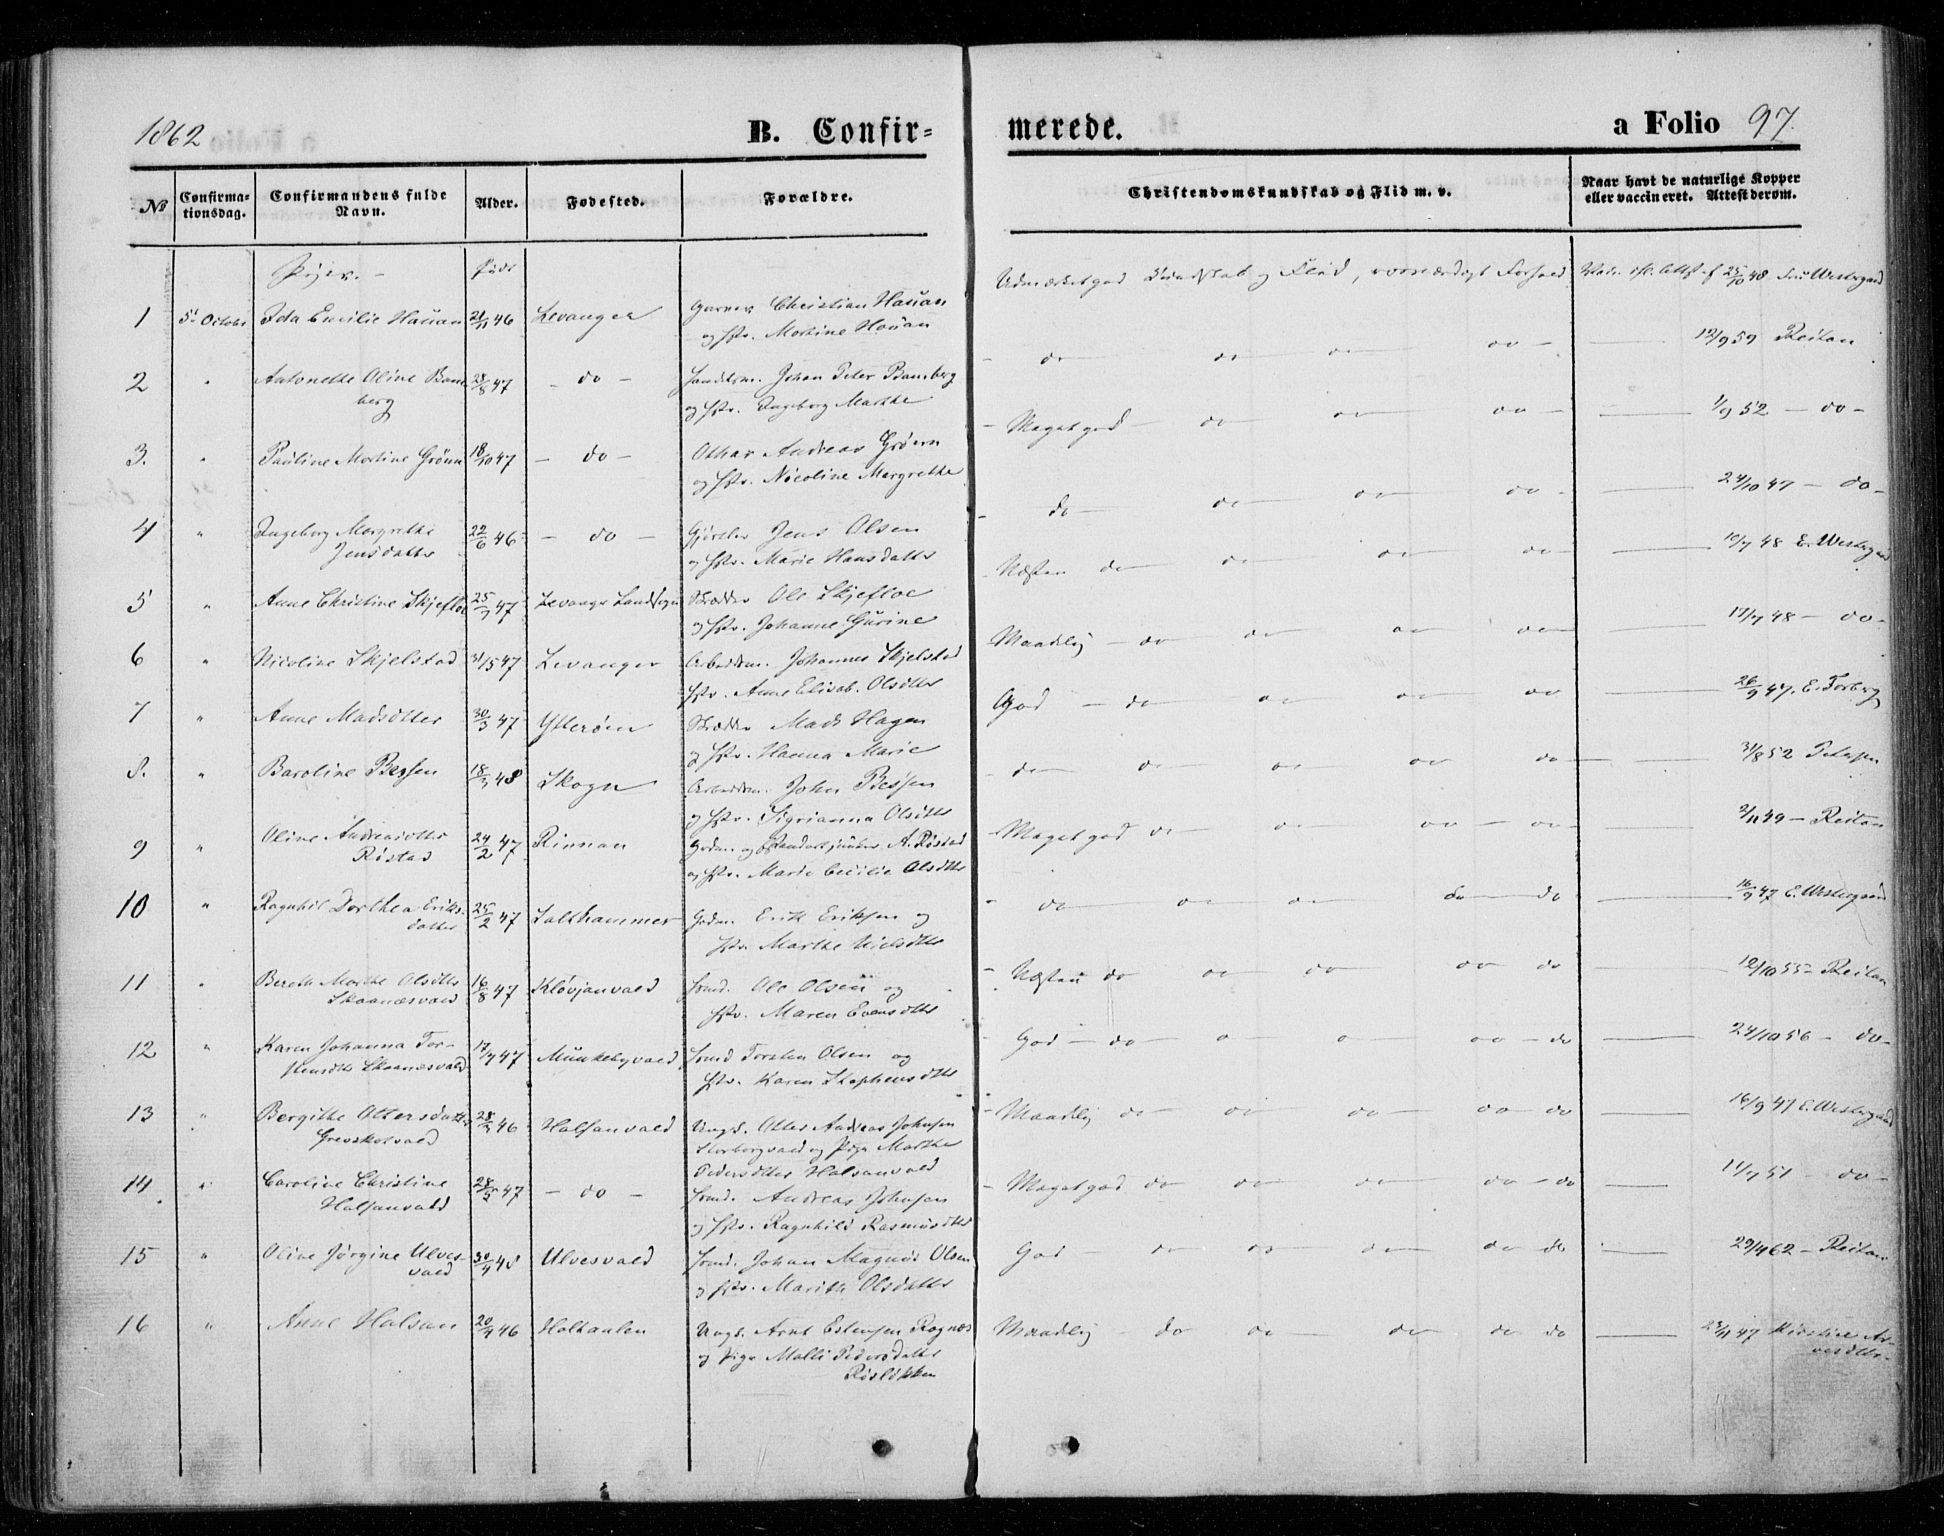 1862 B. Confir= merede. a Folio 97.
No Confirma-tionsdag. Confirmandens fulde Navn. Alder. Fødested. Forældre. Christendomskundskab og Flid m. v. Naar havt de naturlige Kopper eller vaccineret. Attest derom.
Piger. - Født
1 5te Octobr Ida Emilie Hauan 21/11 46 Levanger Garver Christian Hauan
og Hstr. Martine Hauan
Udmærket god Kundskab og Flid, Forhold Vacc. ifl. Attst af 25/10 48 Westergaard
2 " Antonette Oline Bam-
berg 28/8 47 - do - Handelsm. Johan Peter Bamberg
og Hstr. Ingeborg Marthe
- do do do do - 12/9 59 Reitan
3. " Pauline Martine Grönn 18/10 47 - do - Othar Andreas Grøenn
og Hstr. Nicoline Margrethe
- Meget god - do do do - 1/9 52 - do -
4 " Ingeborg Margrethe
Jensdatter 22/6 46 - do - Gjørtler Jens Olsen
og Hstr. Marie Hansdatter
- do do do do - 24/10 47 - do -
5 " Anne Christine Skjefloe 25/7 47 Levanger Landsogn Skrædder Ole Skjefloe
og Hstr. Johanne Gurine
- Næsten do do do do 10/7 48 E. Westergaard
6 " Nicoline Skjelstad 31/5 47 Levanger Arbeidsm. Johannes Skjelstad
Hstr. Anne Elisab. Olsdtter
Maadelig - do do do do 17/7 48 - do -
7 " Anne Madsdtter 30/3 47 Ytterøen Skrædder Mads Hagen
og Hstr. Hanna Marie
God - do do do do 26/9 47. E. Forberg
8. " Baroline Bessen 18/3 48 Skogn Arbeidsm. John Bessen
og Hstr. Sigrianna Olsdtter
- do do do do do 31/8 52 Petersen
9 " Oline Andreasdtter
Ristad 24/2 47 Rinnan Gdm. og A. Ristad
og Hstr. Marie Cecilie Olsdtter
- Meget god do do do - do 2/11 49 - Reitan
10 " Ragnhil Dorthea Eriks-
datter 25/2 47 Salthammer Gdm. Erik Eriksen og
Hstr. Marthe Nielsdtter
- do do do do do 16/9 47 E. Westergaard
11 " Bereth Marthe Olsdtter
Skaanæsvald 16/8 47 Kløvjanvald Hmd. Ole Olsen og
Hstr. Maren Evensdtter
- Næsten do do do do do 12/10 55 Reitan
12 " Karen Johanna Tor-
stensdtter Skaanæsvald 17/7 47 Munkebyvald Hmd Torsten Olsen og
Hstr. Karen Stephensdtter
- God - do do do do - do 24/10 56 - do -
13 " Bergithe Ottersdatter
Grevskotvald 46 Halsanvald Ungk. Otter Andreas Johnsen
Storborgvald og Pige Marthe
Pedersdtter Halsanvald
- Maadelig do do do do do 16/9 47 E. Westergaard
14 " Caroline Christine
Halsanvald 28/5 47 - do - Hmd. Andreas Johnsen
og Hstr. Ragnhild Rasmusdtter
- Meget god do do do do - do 11/7 51 - do -
15 " Oline Jørgine Ulves-
vald 30/4 48 Ulvesvald Hmd. Johan Magnus Olsen
og Hstr. Marith Olsdatter
God do do do do do 29/4 62 - Reitan
16 " Anne Halsan 20/4 46 Holtaalen Ungk. Arnt Estensen Rognes
og Pige Malli Pedersdatter
Risløkken
Maadelig - do do do do do 23/11 47